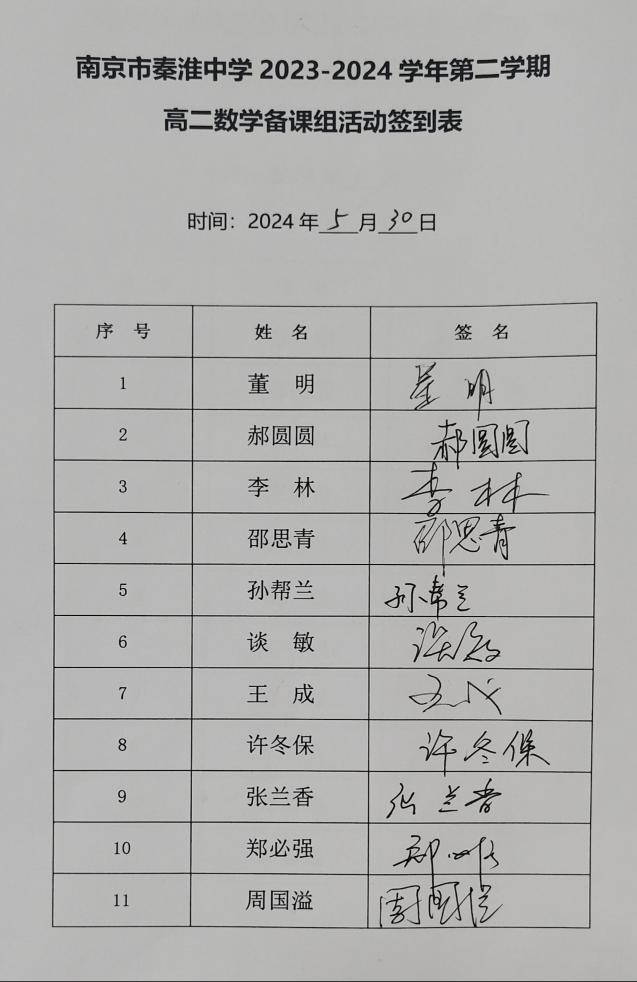 南京市秦淮中学2023-2024学年第二学期
高二数学备课组活动签到表
时间：2024年5月30日
序 号 姓 名 签 名
1 董 明 董 明
2 郝圆圆 郝圆圆
3 李 林 李 林
4 邵思青 邵思青
5 孙帮兰 孙帮兰
6 谈 敏 谈敏
7 王 成 王成
8 许冬保 许冬保
9 张兰香 张兰香
10 郑必强 郑必强
11 周国溢 周国溢